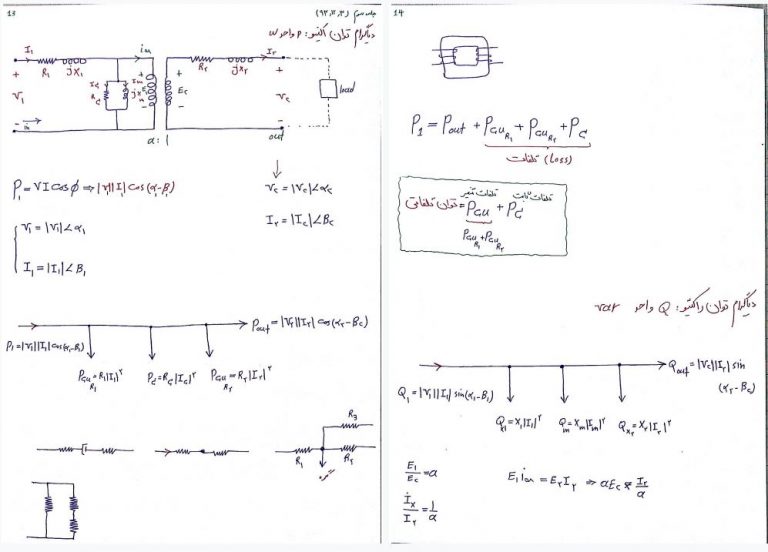 13
جلسه سوم (۹۳,۱۲,۳)
دیاگرام توان اکتیو: P واحد w
I₁
R₁
jX₁
R₂
jX₂
I₂
+
V₁
-
E₂
V₂
load
in
out
a:1
P₁ = VI cosφ ⇒ |V₁||I₁| cos(α₁-β₁)
V₂ = |V₂|∠α₂
I₂ = |I₂|∠β₂
V₁ = |V₁|∠α₁
I₁ = |I₁|∠β₁
Pout = |V₂||I₂| cos(α₂-β₂)
P₁ = |V₁||I₁| cos(α₁-β₁)
Pcu R₁ = R₁|I₁|²
Pc = Rc|Ic|²
Pcu R₂ = R₂|I₂|²
R₃
R₁
R₂
14
P₁ = Pout + Pcu R₁ + Pcu R₂ + Pc
تلفات (Loss)
تلفات متغیر
تلفات ثابت
توان تلفاتی = Pcu + Pc
Pcu R₁ + Pcu R₂
دیاگرام توان راکتیو: Q واحد var
Qout = |V₂||I₂| sin
(α₂-β₂)
Q₁ = |V₁||I₁| sin(α₁-β₁)
Qx₁ = X₁|I₁|²
Qm = Xm|Im|²
Qx₂ = X₂|I₂|²
E₁/E₂ = a
I₂
= 1/a